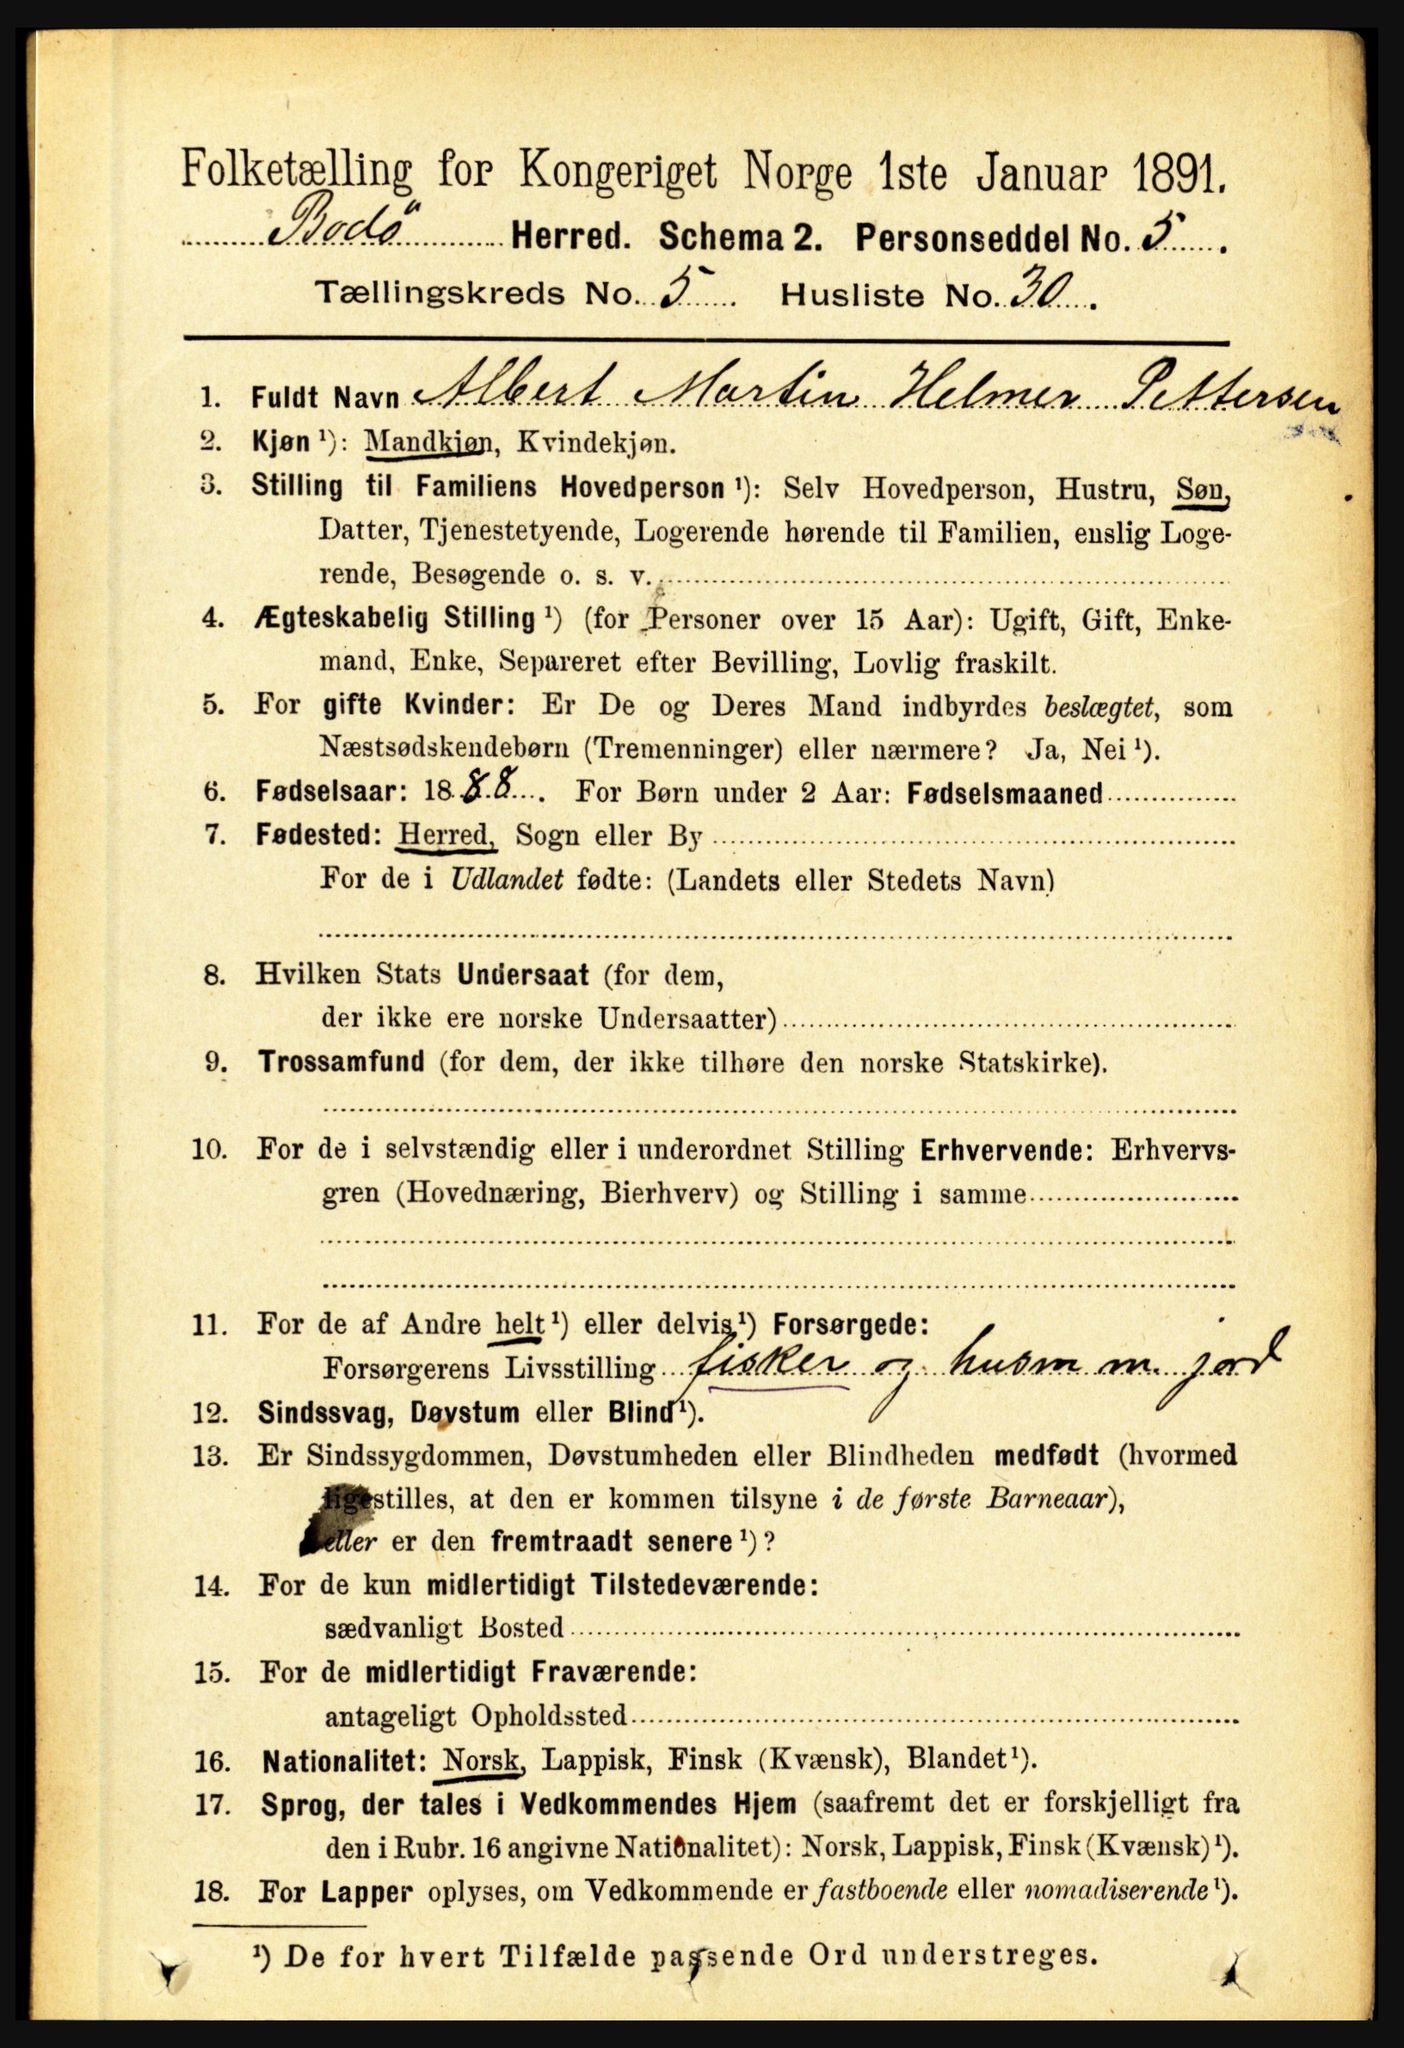 Folketælling for Kongeriget Norge 1ste Januar 1891.
Bodö Herred. Schema 2. Personseddel No. 5.
Tællingskreds No. 5. Husliste No. 30.
1. Fuldt Navn Albert Martin Helmer Pettersen
2. Kjøn ¹): Mandkjøn, Kvindekjøn.
3. Stilling til Familiens Hovedperson ¹): Selv Hovedperson, Hustru, Søn,
Datter, Tjenestetyende, Logerende hørende til Familien, enslig Loge-
rende, Besøgende o. s. v.
4. Ægteskabelig Stilling ¹) (for Personer over 15 Aar): Ugift, Gift, Enke-
mand, Enke, Separeret efter Bevilling, Lovlig fraskilt.
5. For gifte Kvinder: Er De og Deres Mand indbyrdes beslægtet, som
Næstsødskendebørn (Tremenninger) eller nærmere? Ja, Nei ¹).
6. Fødselsaar: 1888. For Børn under 2 Aar: Fødselsmaaned
7. Fødested: Herred, Sogn eller By
For de i Udlandet fødte: (Landets eller Stedets Navn)
8. Hvilken Stats Undersaat (for dem,
der ikke ere norske Undersaatter)
9. Trossamfund (for dem, der ikke tilhøre den norske Statskirke).
10. For de i selvstændig eller i underordnet Stilling Erhvervende: Erhvervs-
gren (Hovednæring, Bierhverv) og Stilling i samme
11. For de af Andre helt ¹) eller delvis ¹) Forsørgede:
Forsørgerens Livsstilling fisker og husm m. jord
12. Sindssvag, Døvstum eller Blind ¹).
13. Er Sindssygdommen, Døvstumheden eller Blindheden medfødt (hvormed
ligestilles, at den er kommen tilsyne i de første Barneaar),
eller er den fremtraadt senere ¹)?
14. For de kun midlertidigt Tilstedeværende:
sædvanligt Bosted
15. For de midlertidigt Fraværende:
antageligt Opholdssted
16. Nationalitet: Norsk, Lappisk, Finsk (Kvænsk), Blandet ¹).
17. Sprog, der tales i Vedkommendes Hjem (saafremt det er forskjelligt fra
den i Rubr. 16 angivne Nationalitet): Norsk, Lappisk, Finsk (Kvænsk) ¹).
18. For Lapper oplyses, om Vedkommende er fastboende eller nomadiserende ¹).
¹) De for hvert Tilfælde passende Ord understreges.